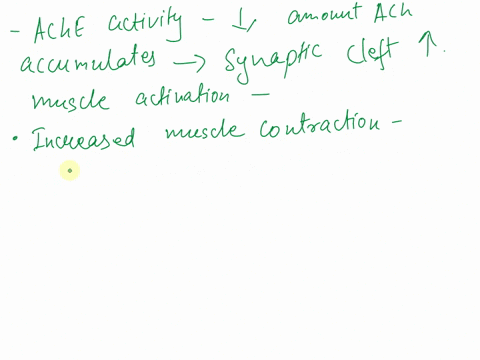 - AChE activity - ↓, amount ACh
accumulates → Synaptic cleft ↑.
muscle activation -
• Increased muscle contraction -